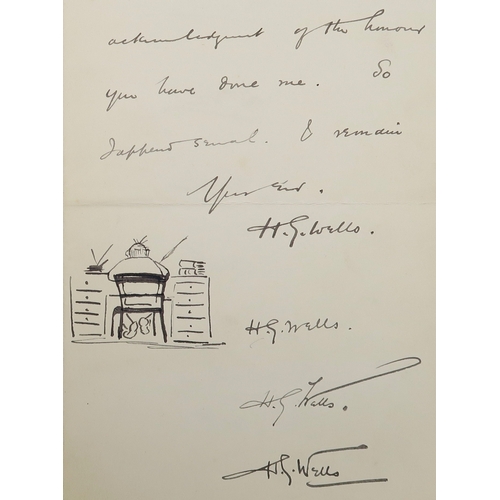 acknowledgment of the honour
you have done me. So
I append several. I remain
Yours Ever.
H.G. Wells.
H.G. Wells.
H.G. Wells.
H.G. Wells